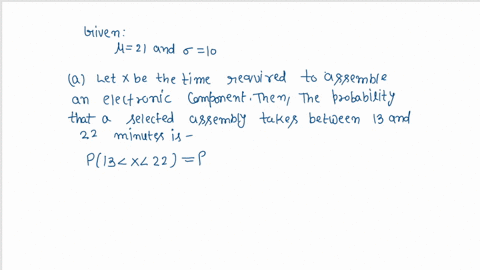 Given:
μ=21 and σ=10
(a) Let x be the time required to assemble
an electronic component. Then, The probability
that a selected assembly takes between 13 and
22 minutes is -
P(13<x<22) = P